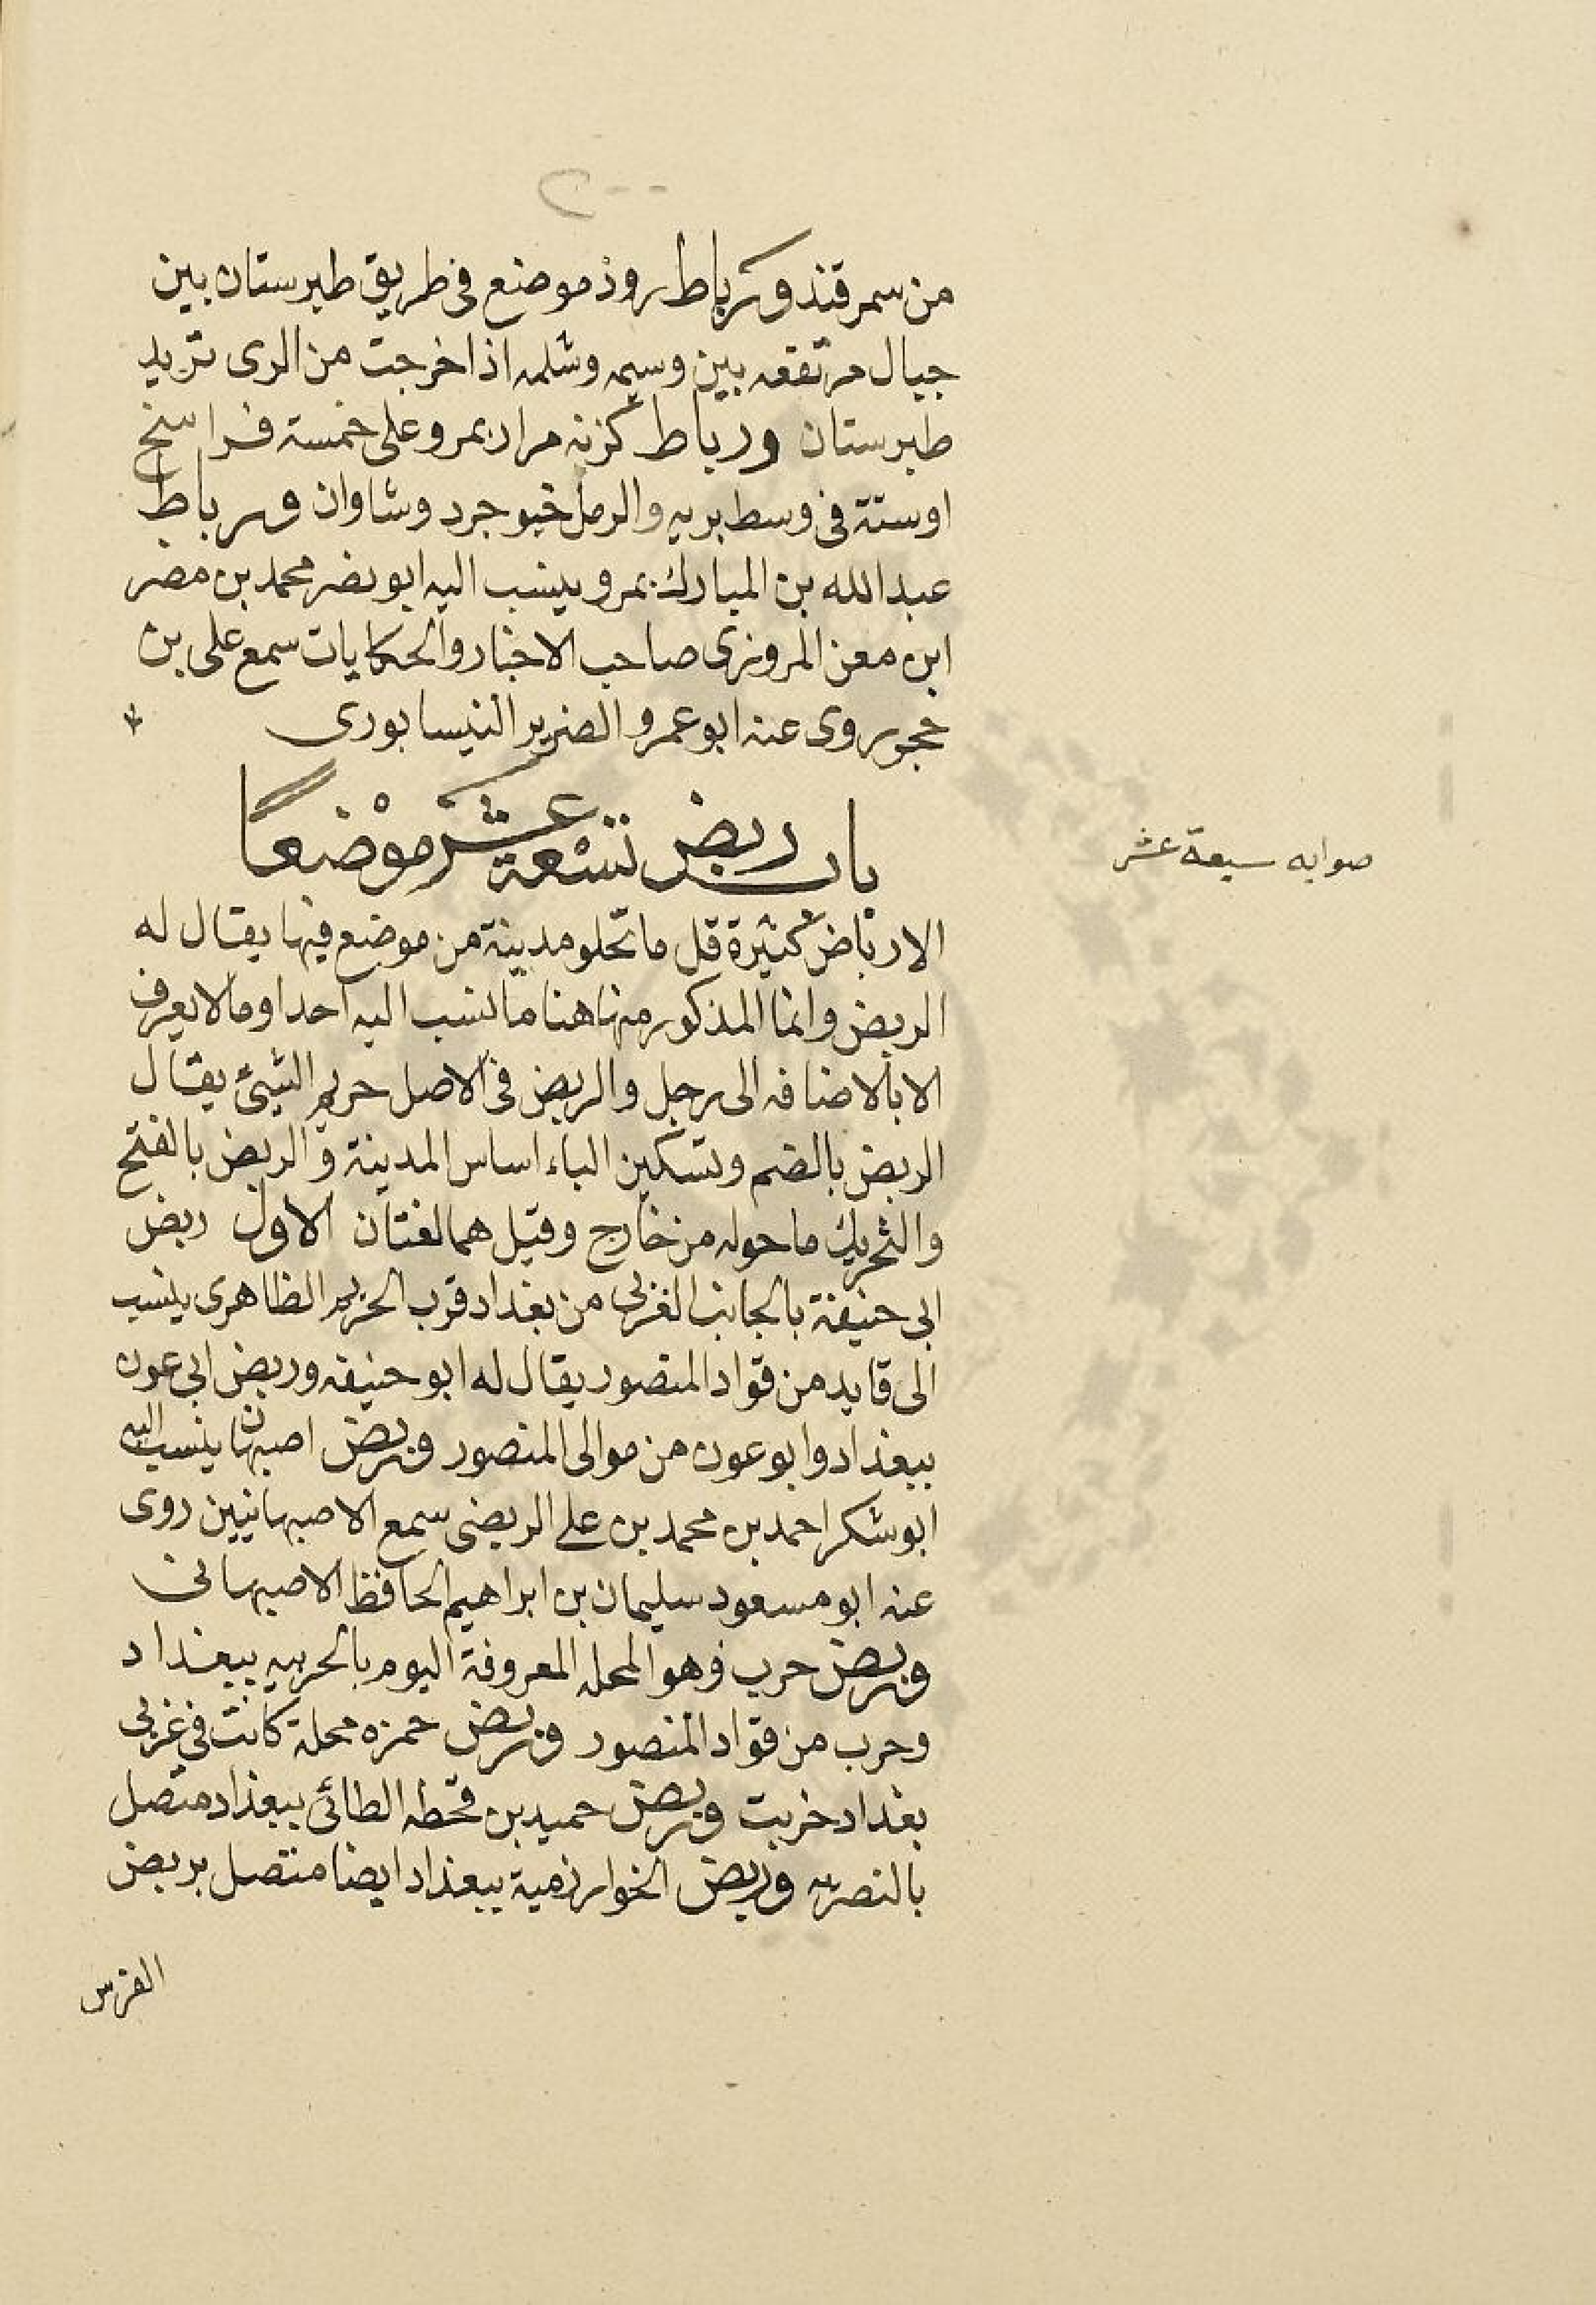 من سمرقند ورباط روذ موضع فى طريق طبرستان بين
جبال مرتفعه بين وسيمه وشلمه اذا خرجت من الرى تريد
طبرستان ورباط كزنه مران بمرو على خمسة فراسخ
اوستة فى وسط بريه والرمل خيو جرد وشاوان ورباط
عبد الله بن المبارك بمرو ينسب اليه ابو نصر محمد بن مضر
ابن معن المروزى صاحب الاخبار والحكايات سمع على بن
حجر روى عنه ابو عمرو الضرير النيسابورى
باب ربض تسعة عشر موضعًا
صوابه سبعة عشر
الارباض كثيرة قل ما تخلو مدينة من موضع فيها يقال له
الربض وانما المذكور منها هنا ما نسب اليه احد او ما لا يعرف
الا بالاضافه الى رجل والربض فى الاصل حريم الشيئ يقال
الربض بالضم وتسكين الباء اساس المدينة والربض بالفتح
والتحريك ما حوله من خارج وقيل هما لغتان الاول ربض
ابى حنيفة بالجانب الغربى من بغداد قرب الحريم الظاهرى ينسب
الى قايد من قواد المنصور يقال له ابو حنيفه وربض ابى عون
ببغداد وابو عون من موالى المنصور وربض اصبهان ينسب اليه
ابو شكر احمد بن محمد بن على الربضى سمع الاصبهانيين روى
عنه ابو مسعود سليمان بن ابراهيم الحافظ الاصبهانى
وربض حرب وهو المحله المعروفة اليوم بالحربيه ببغداد
وحرب من قواد المنصور وربض حمزه محلة كانت فى غربى
بغداد خربت وربض حميد بن قحطبه الطائى ببغداد متصل
بالنصريه وربض الخوارزمية ببغداد ايضا متصل بربض
الفرس